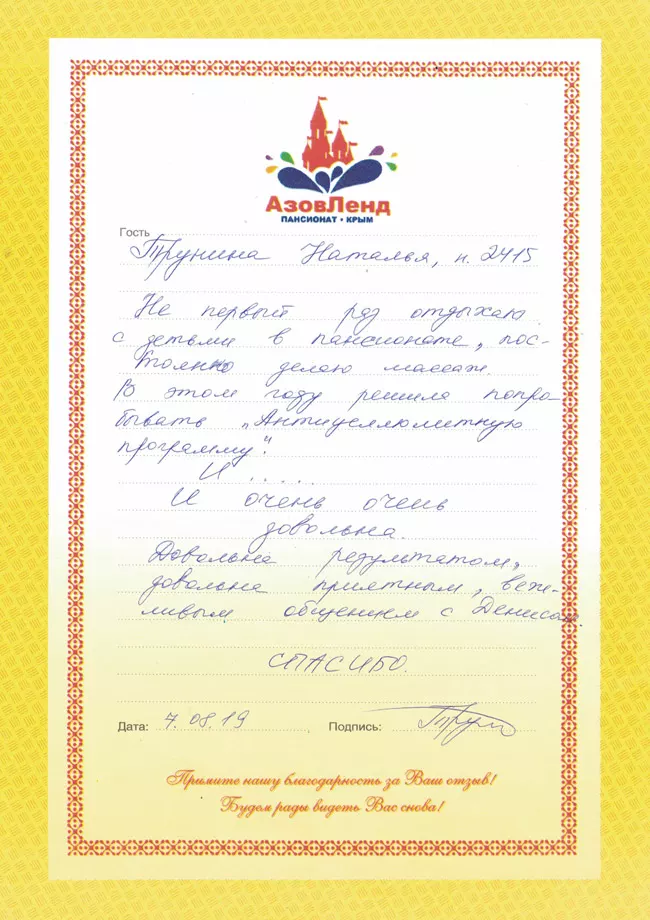 АзовЛенд
ПАНСИОНАТ • КРЫМ
Гость
Трунина Наталья, н. 2415
Не первый раз отдыхаю
с детьми в пансионате, пос-
тоянно делаю массаж.
В этом году решила попро
бывать „Антицеллюлитную
программу".
И .....
И очень очень
довольна.
Довольна результатом,
довольна приятным, веж-
ливым общением с Денисом.
СПАСИБО.
Дата: 7.08.19 Подпись:
Примите нашу благодарность за Ваш отзыв!
Будем рады видеть Вас снова!